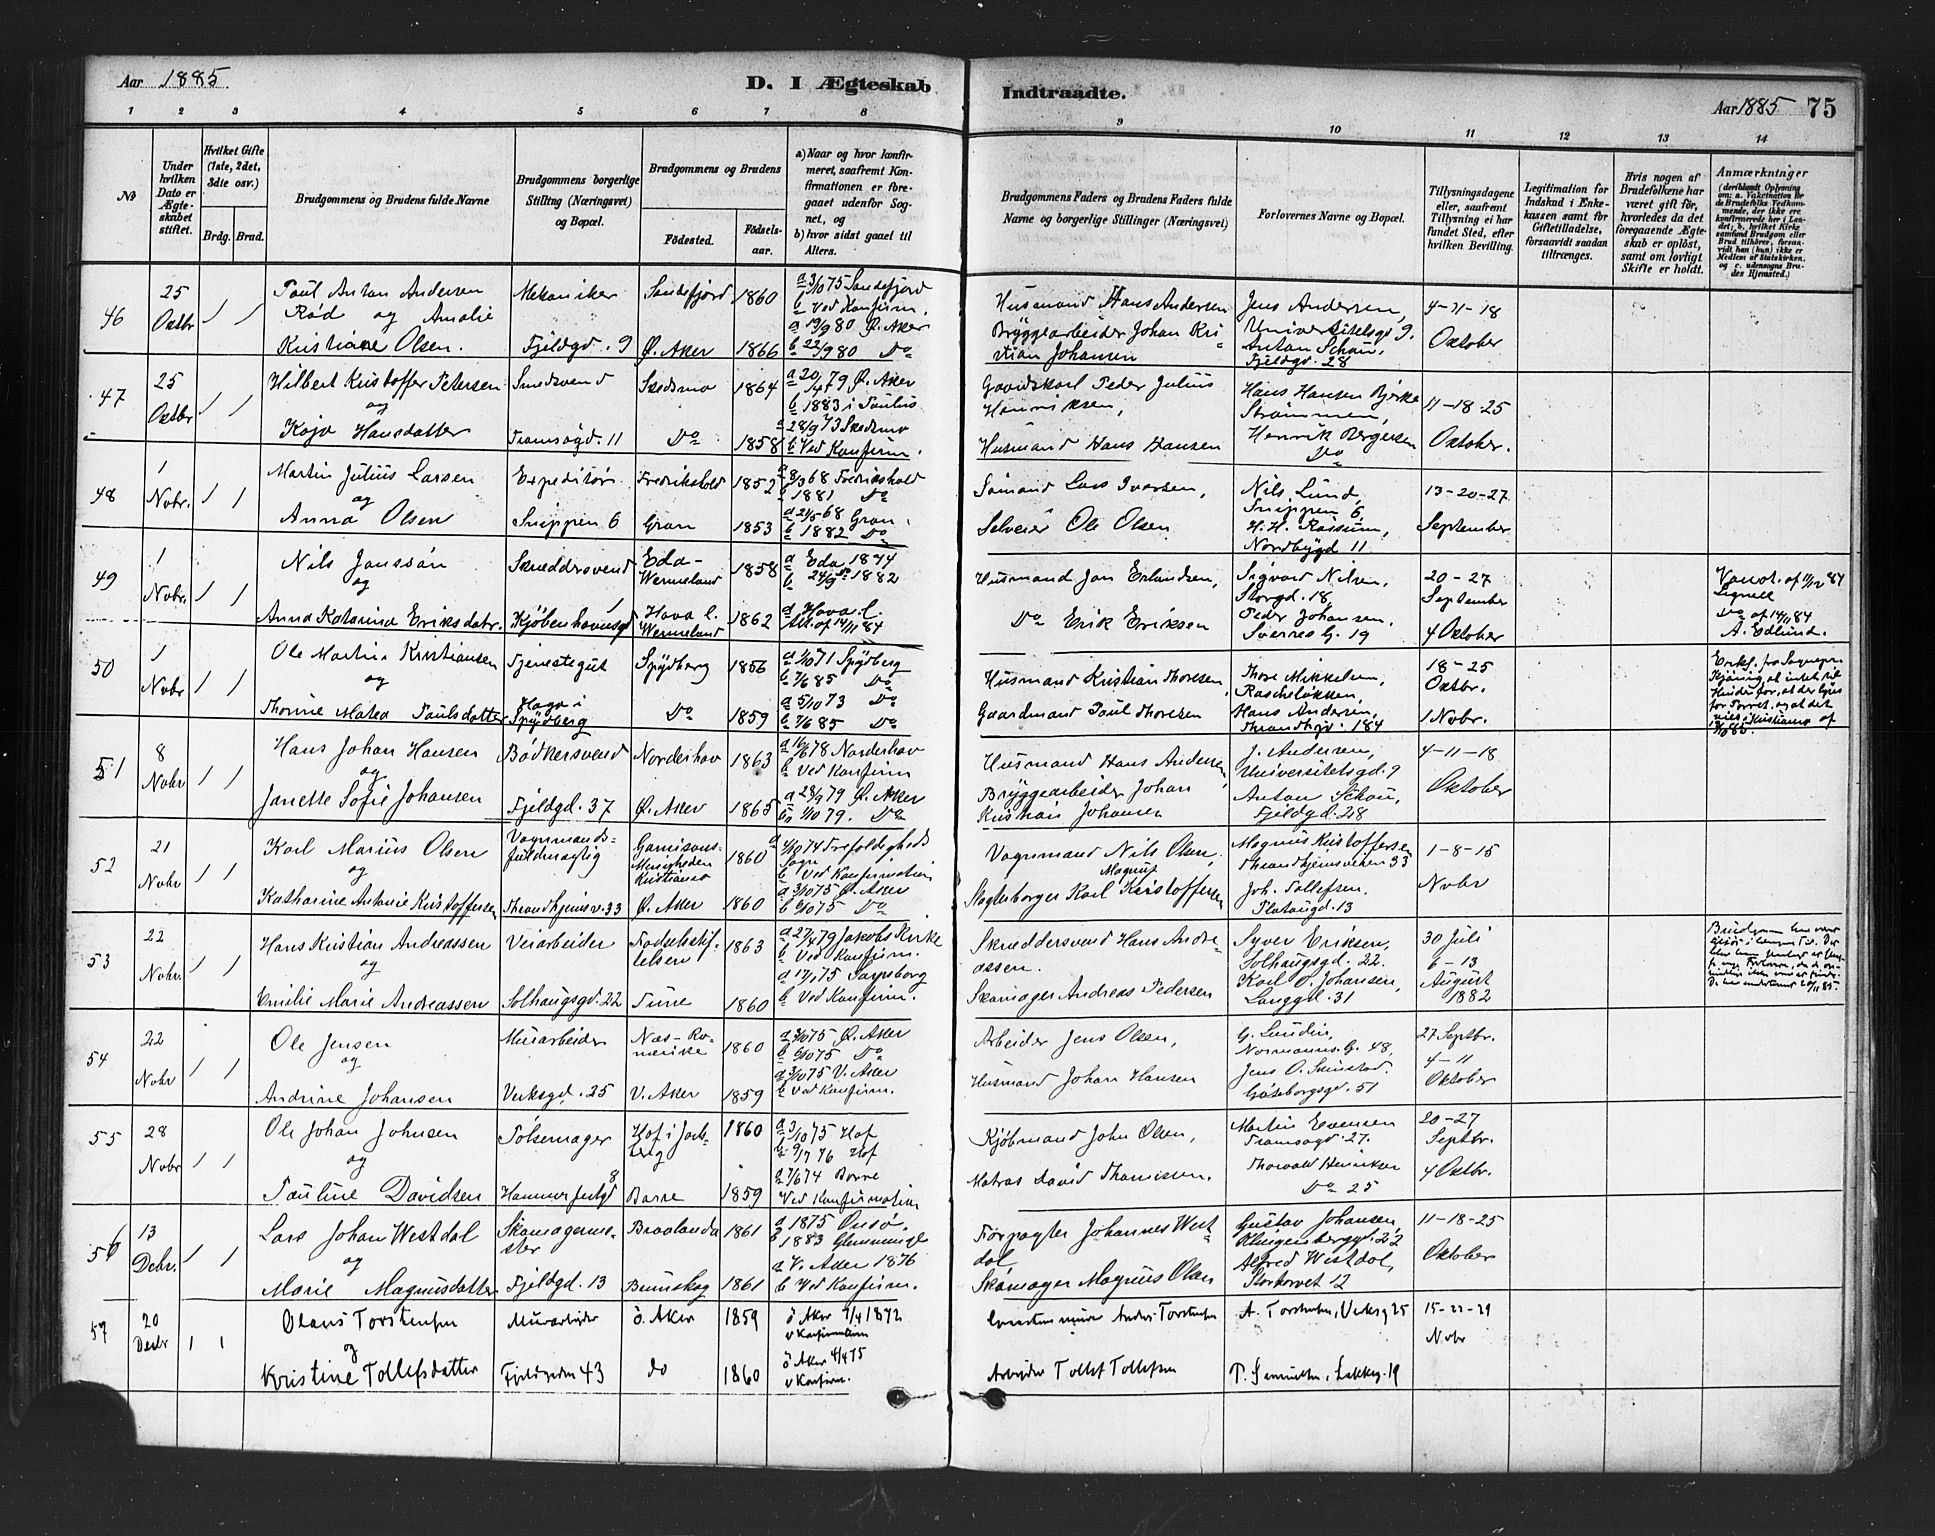 Aar 1885.
D. I Ægteskab
Indtraadte.
Aar 1885 75
1 2 3 4 5 6 7 8 9 10 11 12 13 14
No
Under hvilken Dato er Ægteskabet stiftet.
Hvilket Gifte (1ste, 2det, 3die osv.)
Brdg. Brud.
Brudgommens og Brudens fulde Navne
Brudgommens borgerlige Stilling (Næringsvei) og Bopæl.
Brudgommens og Brudens
Fødested.
Fødselsaar.
a) Naar og hvor konfirmeret, saafremt Konfirmationen er foregaaet udenfor Sognet, og
b) hvor sidst gaaet til Alters.
Brudgommens Faders og Brudens Faders fulde Navne og borgerlige Stillinger (Næringsvei)
Forlovernes Navne og Bopæl.
Tillysningsdagene eller, saafremt Tillysning ei har fundet Sted, efter hvilken Bevilling.
Legitimation for Indskud i Enkekassen samt for Giftetilladelse, forsaavidt saadan tiltrænges.
Hvis nogen af Brudefolkene har været gift før, hvorledes da det foregaaende Ægteskab er opløst, samt om lovligt Skifte er holdt.
Anmærkninger
46 25 Oktbr 1 1
Paul Anton Andersen Rød og Amalie Kristiane Olsen.
Mekaniker Fjeldgd. 9
Sandefjord 1860
Ø. Aker 1866
a 3/10 75 Sandefjord
b Ved Konfirm.
a 19/9 80 Ø. Aker
b 22/9 80 Do
Husmand Hans Andersen
Bryggearbeider Johan Kristian Johansen
Jens Andersen, Universitetsgd 9.
Anton Schou, Fjeldgd. 28
4-11-18 Oktober
47 25 Oktbr 1 1
Hilbert Kristoffer Petersen
og
Kaja Hansdatter
Smedsvend
Tromsøgd. 11
Skedsmo 1864
Do 1858
a 20/4 79 Ø. Aker
b 1883 i Paulus
a 28/9 73 Skedsmo
b Ved Konfirm.
Gaardskarl Peder Julius Henriksen,
Husmand Hans Hansen
Hans Hansen Bjerke Strømmen,
Henrik Bergersen Do
11-18-25 Oktober.
48 1 Nobr. 1 1
Martin Julius Larsen
og
Anna Olsen
Expeditør
Snippen 6
Fredrikshald 1852
Gran 1853
a 8/3 68 Fredrikshald
b 1881 Do
a 24/5 68 Gran.
b 1882 Do
Sømand Lars Iversen,
Selveier Ole Olsen
Nils Lund, Snippen 6,
Nordbygd 11
13-20-27 September
49 1 Nobr. 1 1
Nils Jansson
og
Anna Katarina Eriksdatr.
Skræddersvend
Kjøbenhavnsgd
Eda-Wermeland 1858
Wermeland 1862
a Eda 1874
Att. af 14/11 84
Husmand Jan Erlandsen,
Do Erik Eriksen
Sigvard Nilsen, Storgd. 18
Peder Johansen, Sverres G. 19
20-27 September
4 Oktober
A. Edlund.
50 1 Nobr 1 1
Ole Martin Kristiansen
og
Thorine Matea Paulsdatter
Tjenestegut
Haga i Spydberg
Spydberg 1856
Do 1859
a 1/10 71 Spydberg
b 7/6 85 Do
a 5/10 73 Do
b 7/6 85 Do
Husmand Kristian Thoresen
Gaardmand Paul Thoresen
Thore Mikkelsen, Rasceløkken,
Hans Andersen, Throndhjv. 184
18-25 Oktbr.
1 Nobr.
51 8 Nobr 1 1
Hans Johan Hansen
og
Janette Sofie Johansen
Bødkersvend
Fjeldgd. 37
Norderhov 1863
Ø. Aker 1865
a 16/6 78 Norderhov
b Ved Konfirm
a 28/9 79 Ø. Aker
b 1/10 79. Do
Husmand Hans Andersen,
Bryggearbeider Johan Kristian Johansen
J. Andersen, Universitetsgd. 9
Anton Schou, Fjeldgd. 28
4-11-18 Oktober
52 21 Nobr 1 1
Karl Marius Olsen
og
Katharine Antonie Kristoffersen
Vognmandsfuldmægtig
Throndhjemsv. 33
Garnisons-Menigheden Kristiania 1860
Ø. Aker 1860
a 4/10 74 Trefoldigheds Sogn
b Ved Konfirmation
a 3/10 75 Ø. Aker
b 6/10 75 Do
Vognmand Nils Olsen,
Slagterborger Karl Magnus Kristoffersen
Magnus Kristoffersen Throndhjemsveien 33
Joh. Tollefsen. Platougd. 13
1-8-15 Nobr
53 22 Nobr. 1 1
Hans Kristian Andreassen
og
Emilie Marie Andreassen
Veiarbeider
Solhaugsgd. 22
Fødselsstiftelsen 1863
Tune 1860
a 27/4 79 Jakobs Kirke
b Ved Konfirm.
a 75 Sarpsborg
b Ved Konfirm.
Skræddersvend Hans Andreassen.
Skomager Andreas Pedersen
Syver Eriksen, Solhaugsgd. 22.
Karl O. Johansen, Langgd. 31
30 Juli
6-13 August 1882
54 22 Nobr 1 1
Ole Jensen
og
Andrine Johansen
Murarbeider
Verksgd. 25
Næs-Romerike 1860
V. Aker 1859
a 3/10 75 Ø. Aker
b 6/10 75 Do
a 3/10 75 V. Aker
b Ved Konfirm.
Arbeider Jens Olsen,
Husmand Johan Hansen
G. Lundin, Normanns. G. 48,
Gøteborgsgd. 51
27 Septbr.
4-11 Oktober
55 28 Nobr 1 1
Ole Johan Johnsen
og
Pauline Davidsen
Pølsemager
Hammerfestgd 8
Hof i Jarlsberg 1860
Borre 1859
a 3/10 75 Hof
76 Hof
a 7/6 74 Borre
Ved Konfirmation
Kjøbmand John Olsen,
Matros David Thomesen.
Martin Evensen Tromsøgd. 27.
Thorvald Henriksen Do 25
20-27 Septbr.
4 Oktbr.
56 13 Decbr. 1 1
Lars Johan Westdal
og
Marie Magnusdatter
Skomagermester
Fjeldgd. 13
Braalanda 1861
Brunskog 1861
a 1875 Onsø.
b 1883 Glemminge
a V. Aker 1876
b Ved Konfirm.
Forpagter Johannes Westdal
Skomager Magnus Olsen
Gustav Johansen, Klingenberggd. 22
Alfred Westdal, Stortorvet 12
11-18-25 Oktober
57 20 Decbr 1 1
Olaus Torstensen
og
Kristine Tollefsdatter
Murarbeider
Fjeldgaden 43
ö. Aker 1859
do 1860
ö Aker 7/4 1872
v Konfirmationen
ö Aker 4/4 75
v Konfirm.
Anders Torstensen
Arbeider Tollef Tollefsen
A. Torstensen, Verksg 25
15-22-29 Nobr